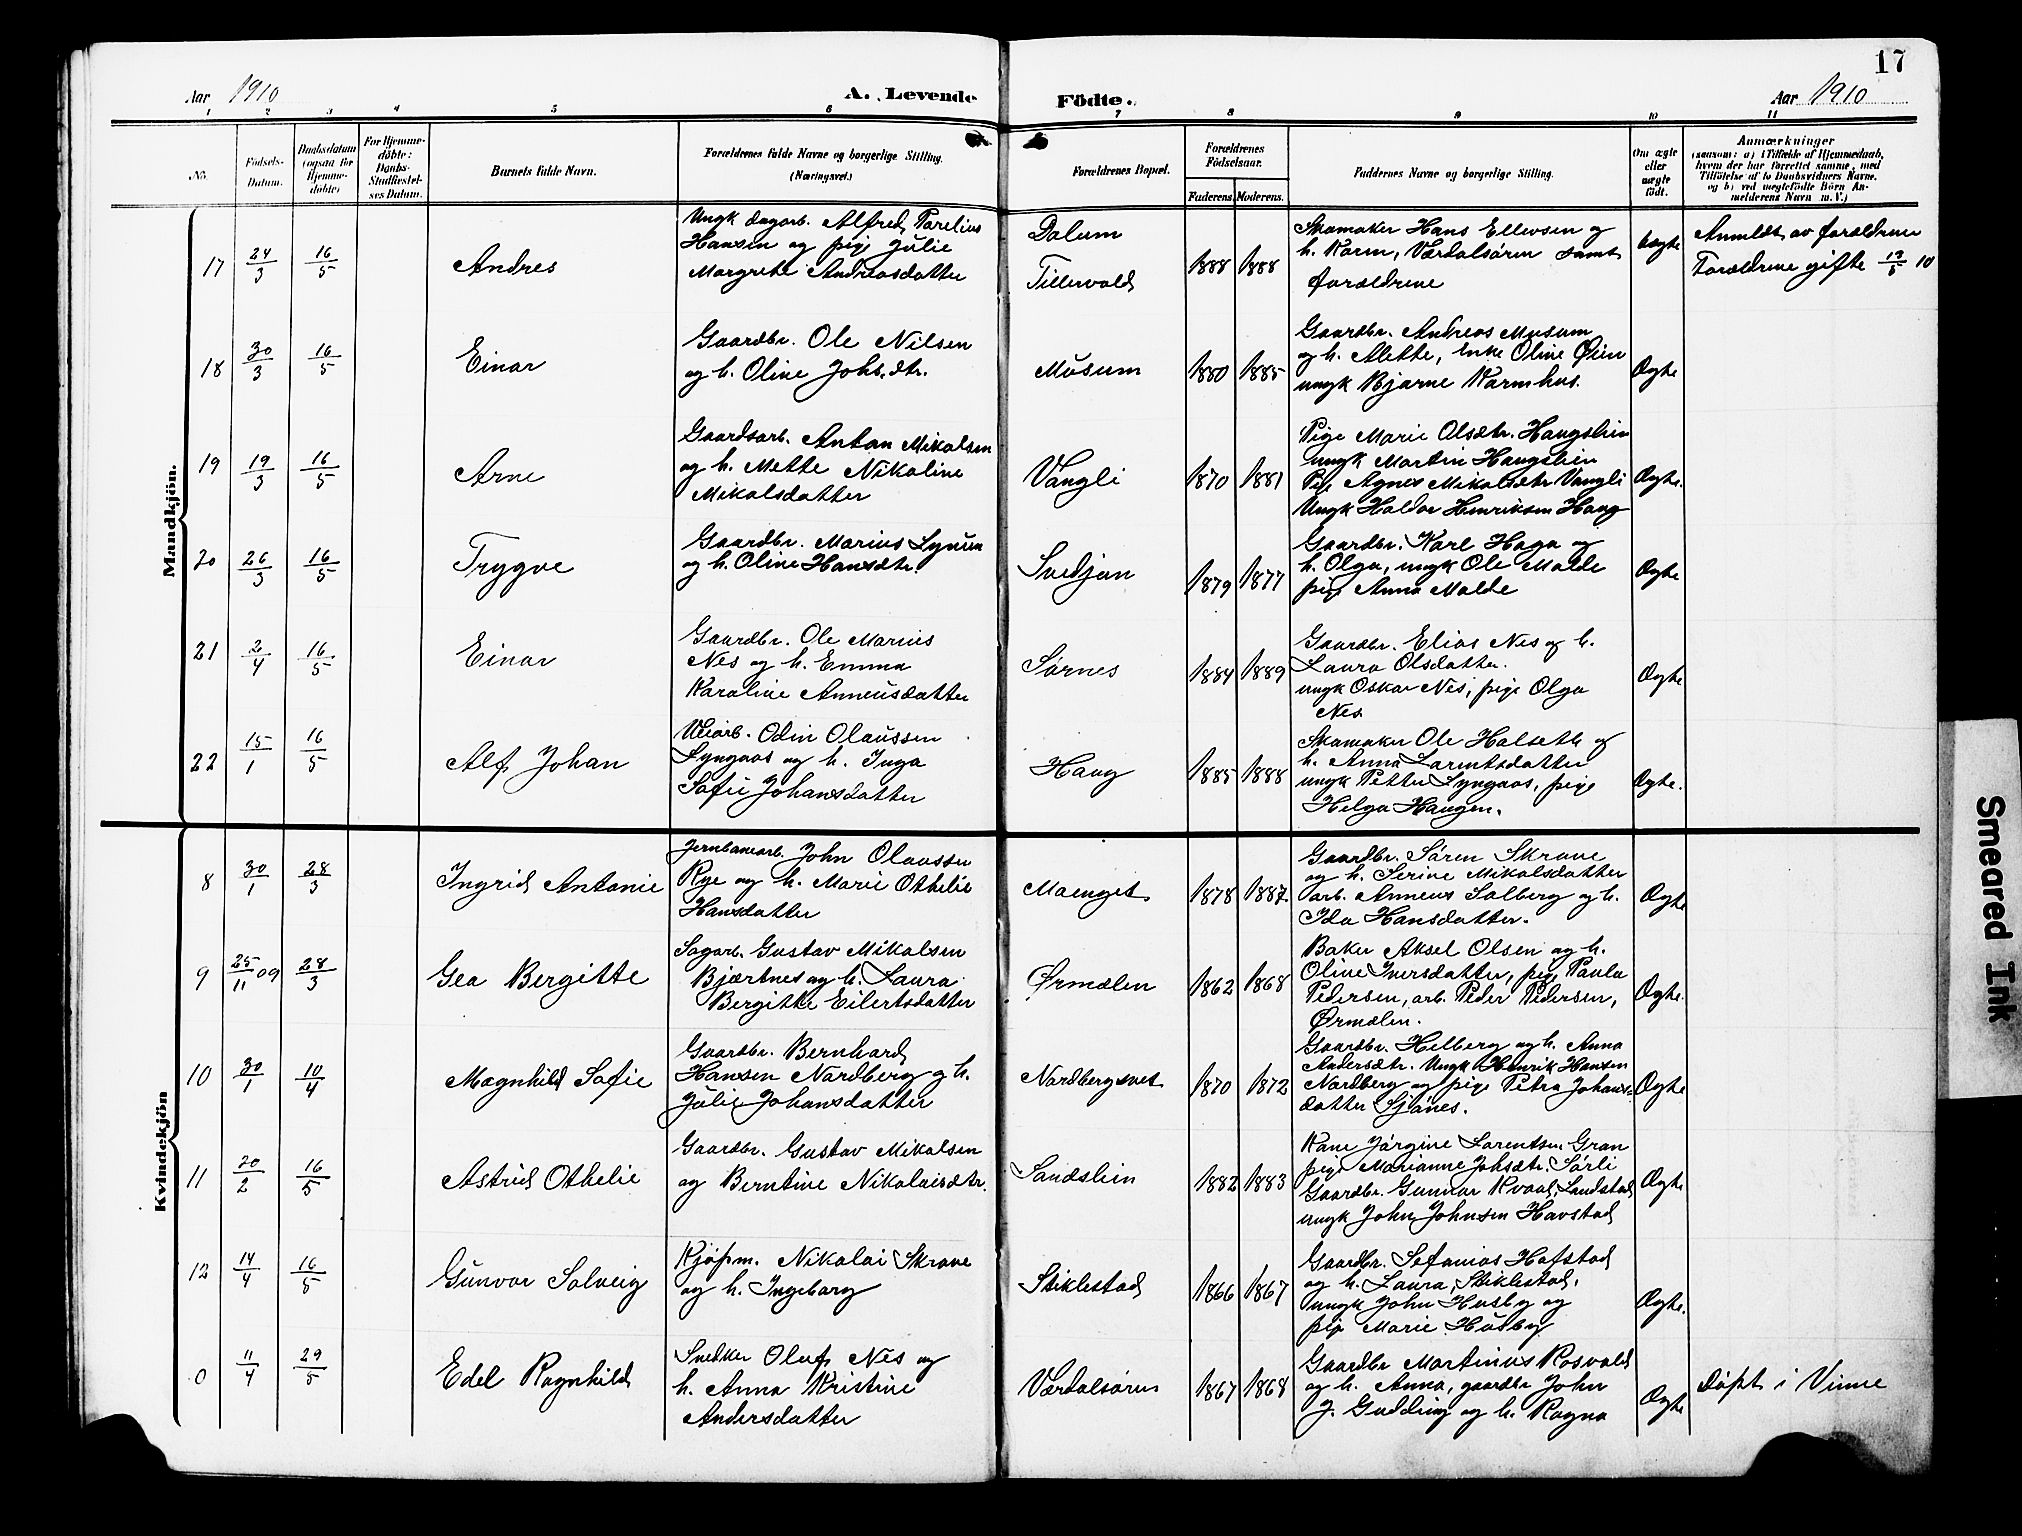 17
Aar 1910
A. Levende Födte.
Aar 1910
1 2 3 4 5 6 7 8 9 10 11
No.
Födsels-Datum.
Daabsdatum (ogsaa for Hjemme-döbte)
For Hjemme-döbte: Daabs-Stadfæstel-ses Datum.
Barnets fulde Navn.
Forældrenes fulde Navne og borgerlige Stilling. (Næringsvei.)
Forældrenes Bopæl.
Forældrenes Födselsaar.
Faderens. Moderens.
Faddernes Navne og borgerlige Stilling.
Om ægte eller uægte födt.
Anmærkninger
(saasom: a) i Tilfælde af Hjemmedaab, hvem der har forrettet samme, med Tilföielse af to Daabsvidners Navne. og b) ved uægtefödte Börn An-melderens Navn m. V.)
Mandkjön.
17 24/3 16/5 Andres
Ungk dagarb. Alfred Torelius
Hansen og pige Julie
Margrete Andreasdatter
Dalum
Tillervald
1888 1888
Skomaker Hans Ellevsen og
h. Karen, Værdalsøren samt
forældrene
Uægte
Anmeldt av forældrene
Forældrene gifte 10
18 30/3 16/5 Einar
Gaardbr. Ole Nilsen
og h. Oline Johs.dtr.
Musum
1880 1885
Gaardbr. Andreas Musum
og h. Alette, Enke Oline Øien
ungk Bjarne Karmhus.
Ægte
19 19/3 16/5 Arne
Gaardsarb. Anton Mikalsen
og h. Mette Nikoline
Mikalsdatter
Vangli
1870 1881
Pige Marie Olsdtr. Haugslien
ungk Martin Haugslien
Pige Agnes Mikalsdtr Vangli
Ungk Haldor Henriksen Haug
Ægte.
20 26/3 16/5 Trygve
Gaardbr. Marius
og h. Oline Hansdtr.
Svedjan
1879 1877
Gaardbr. Karl Haga og
h. Olga, ungk Ole Molde
pige Anna Molde
Ægte
21 2/4 16/5 Einar
Gaardbr. Ole Marius
Nes og h. Emma
Karoline Anneusdatter
Sørnes
1884 1889
Gaardbr. Elias Nes og h.
Laura Olsdatter.
ungk Oskar Nes, pige Olga
Nes.
Ægte
22 15/1 16/5 Alf Johan
Veiarb. Odin Olaussen
Lyngaas og h. Inga
Sofie Johansdatter
Haug
1885 1888
Skomaker Ole Halseth og
h. Anna Larentsdatter
ungk Petter Lyngaas, pige
Helga Haugen.
Ægte.
Kvindekjön
8 30/1 28/3 Ingrid Antonie
Jernbanearb. John Olaussen
Rye og h. Marie Othelie
Hansdatter
Maenget
1878 1887
Gaardbr. Søren Skrove
og h. Serine Mikalsdatter
arb. Anneus Solberg og h.
Ida Hansdatter.
Ægte
9 25/11 09 28/3 Gea Bergitte
Sagarb. Gustav Mikalsen
Bjærtnes og h. Laura
Bergitte Eilertsdatter
Ørmælen
1862 1868
Baker Aksel Olsen og h.
Oline Iversdatter, pige Paula
Pedersen, arb. Peder Pedersen,
Ørmælen.
Ægte.
10 30/1 10/4 Magnhild Sofie
Gaardbr. Bernhard
Hansen Nordberg og h.
Julie Johansdatter
Nordbergsvet
1870 1872
Gaardbr. Helberg og h. Anna
Andersdtr. Ungk Henrik Hansen
Nordberg og pige Petra Johans-
datter Sjønes.
Ægte
11 20/2 16/5 Astrid Othelie
Gaardbr. Gustav Mikalsen
og Berntine Nikolaisdtr.
Sandslien
1882 1883
Kone Jørgine Larentsen Gran
pige Marianne Johsdtr. Sørli
Gaardbr. Gunnar Kvaal, Landstad
ungk John Johnsen Havstad
Ægte
12 14/4 16/5 Gunvor Solveig
Kjøpm. Nikolai Skrove
og h. Ingeborg
Stiklestad
1866 1867
Gaardbr. Sefanias Hofstad
og h. Laura, Stiklestad,
ungk John Husby og
pige Marie Husby
Ægte.
0 11/4 29/5 Edel Ragnhild
Snedker Oluf Nes og
h. Anna Kristine
Andersdatter
Værdalsøren
1867 1868
Gaardbr Martinus Rosvold
og h. Anna, gaardbr John
J. Gudding og h. Ragna
Ægte
Døpt i Vinne
Smeared Ink